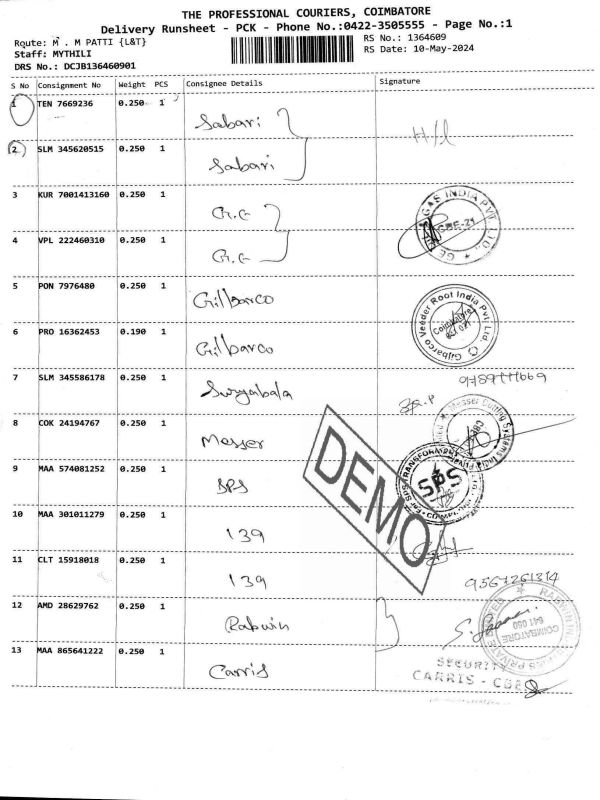 THE PROFESSIONAL COURIERS, COIMBATORE
Delivery Runsheet - PCK - Phone No.:0422-3505555 - Page No.:1
Route: M . M PATTI {L&T}
RS No.: 1364609
Staff: MYTHILI
RS Date: 10-May-2024
DRS No.: DCJB136460901
S No Consignment No Weight PCS Consignee Details Signature
1 TEN 7669236 0.250 1 Sabari
2 SLM 345620515 0.250 1 Sabari
3 KUR 7001413160 0.250 1 G.E
4 VPL 222460310 0.250 1 G.E
5 PON 7976480 0.250 1 Gilbarco
6 PRO 16362453 0.190 1 Gilbarco
7 SLM 345586178 0.250 1 Suryabala
8 COK 24194767 0.250 1 Messer
9 MAA 574081252 0.250 1 SPS
10 MAA 301011279 0.250 1 139
11 CLT 15918018 0.250 1 139
12 AMD 28629762 0.250 1 Rabwin
13 MAA 865641222 0.250 1 Carris
GAS INDIA PVT. LTD.
CBE-21
Gilbarco Veeder Root India Pvt. Ltd.
Coimbatore
641 021
Messer Cutting Systems India
SPS
DEMO
COIMBATORE
641 050
SECURITY
CARRIS - CBE